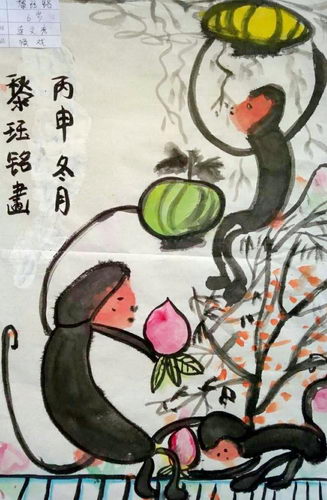 6岁
丙申冬月
黎珏铭畫